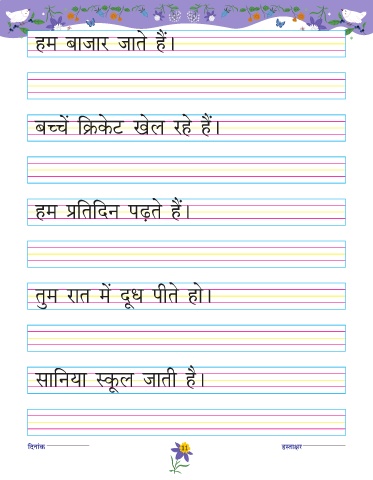 हम बाजार जाते हैं।
बच्चें क्रिकेट खेल रहे हैं।
हम प्रतिदिन पढ़ते हैं।
तुम रात में दूध पीते हो।
सानिया स्कूल जाती है।
दिनांक
11
हस्ताक्षर